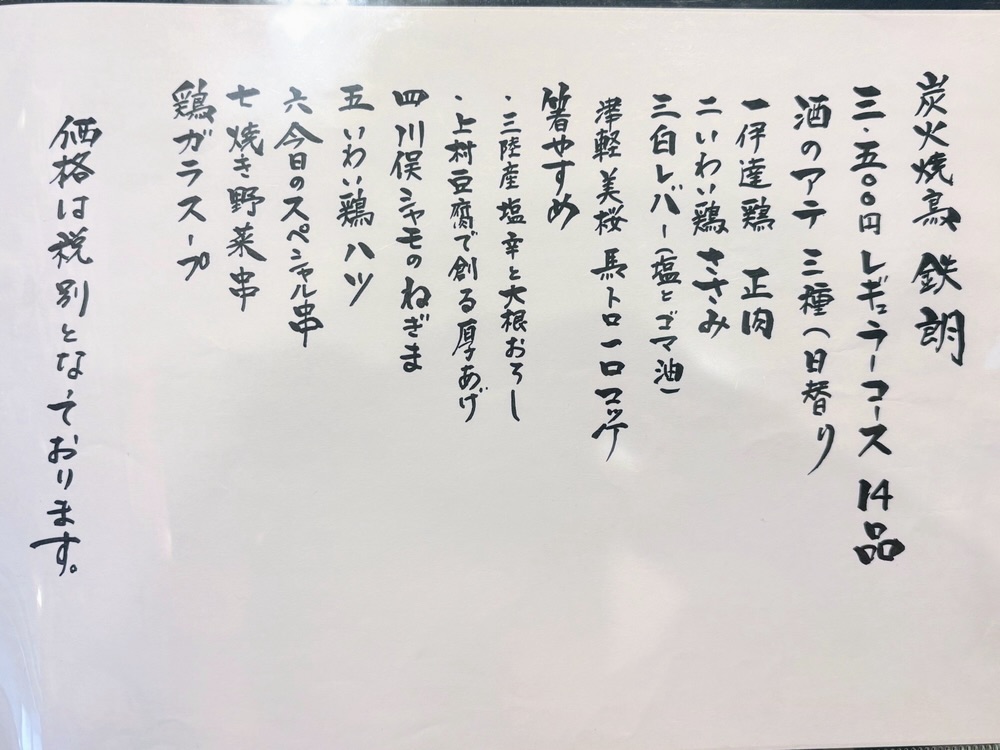 炭火焼鳥 鉄朗
三.五〇〇円 レギュラーコース 14品
酒のアテ 三種(日替り
一 伊達鶏 正肉
二 いわい鶏 ささみ
三 白レバー(塩とゴマ油)
津軽美桜 馬トロ一口コロッケ
箸やすめ
・三陸産塩辛と大根おろし
・上村豆腐で創る厚あげ
四 川俣シャモのねぎま
五 いわい鶏 ハツ
六 今日のスペシャル串
七 焼き野菜串
鶏ガラスープ
価格は税別となっております。